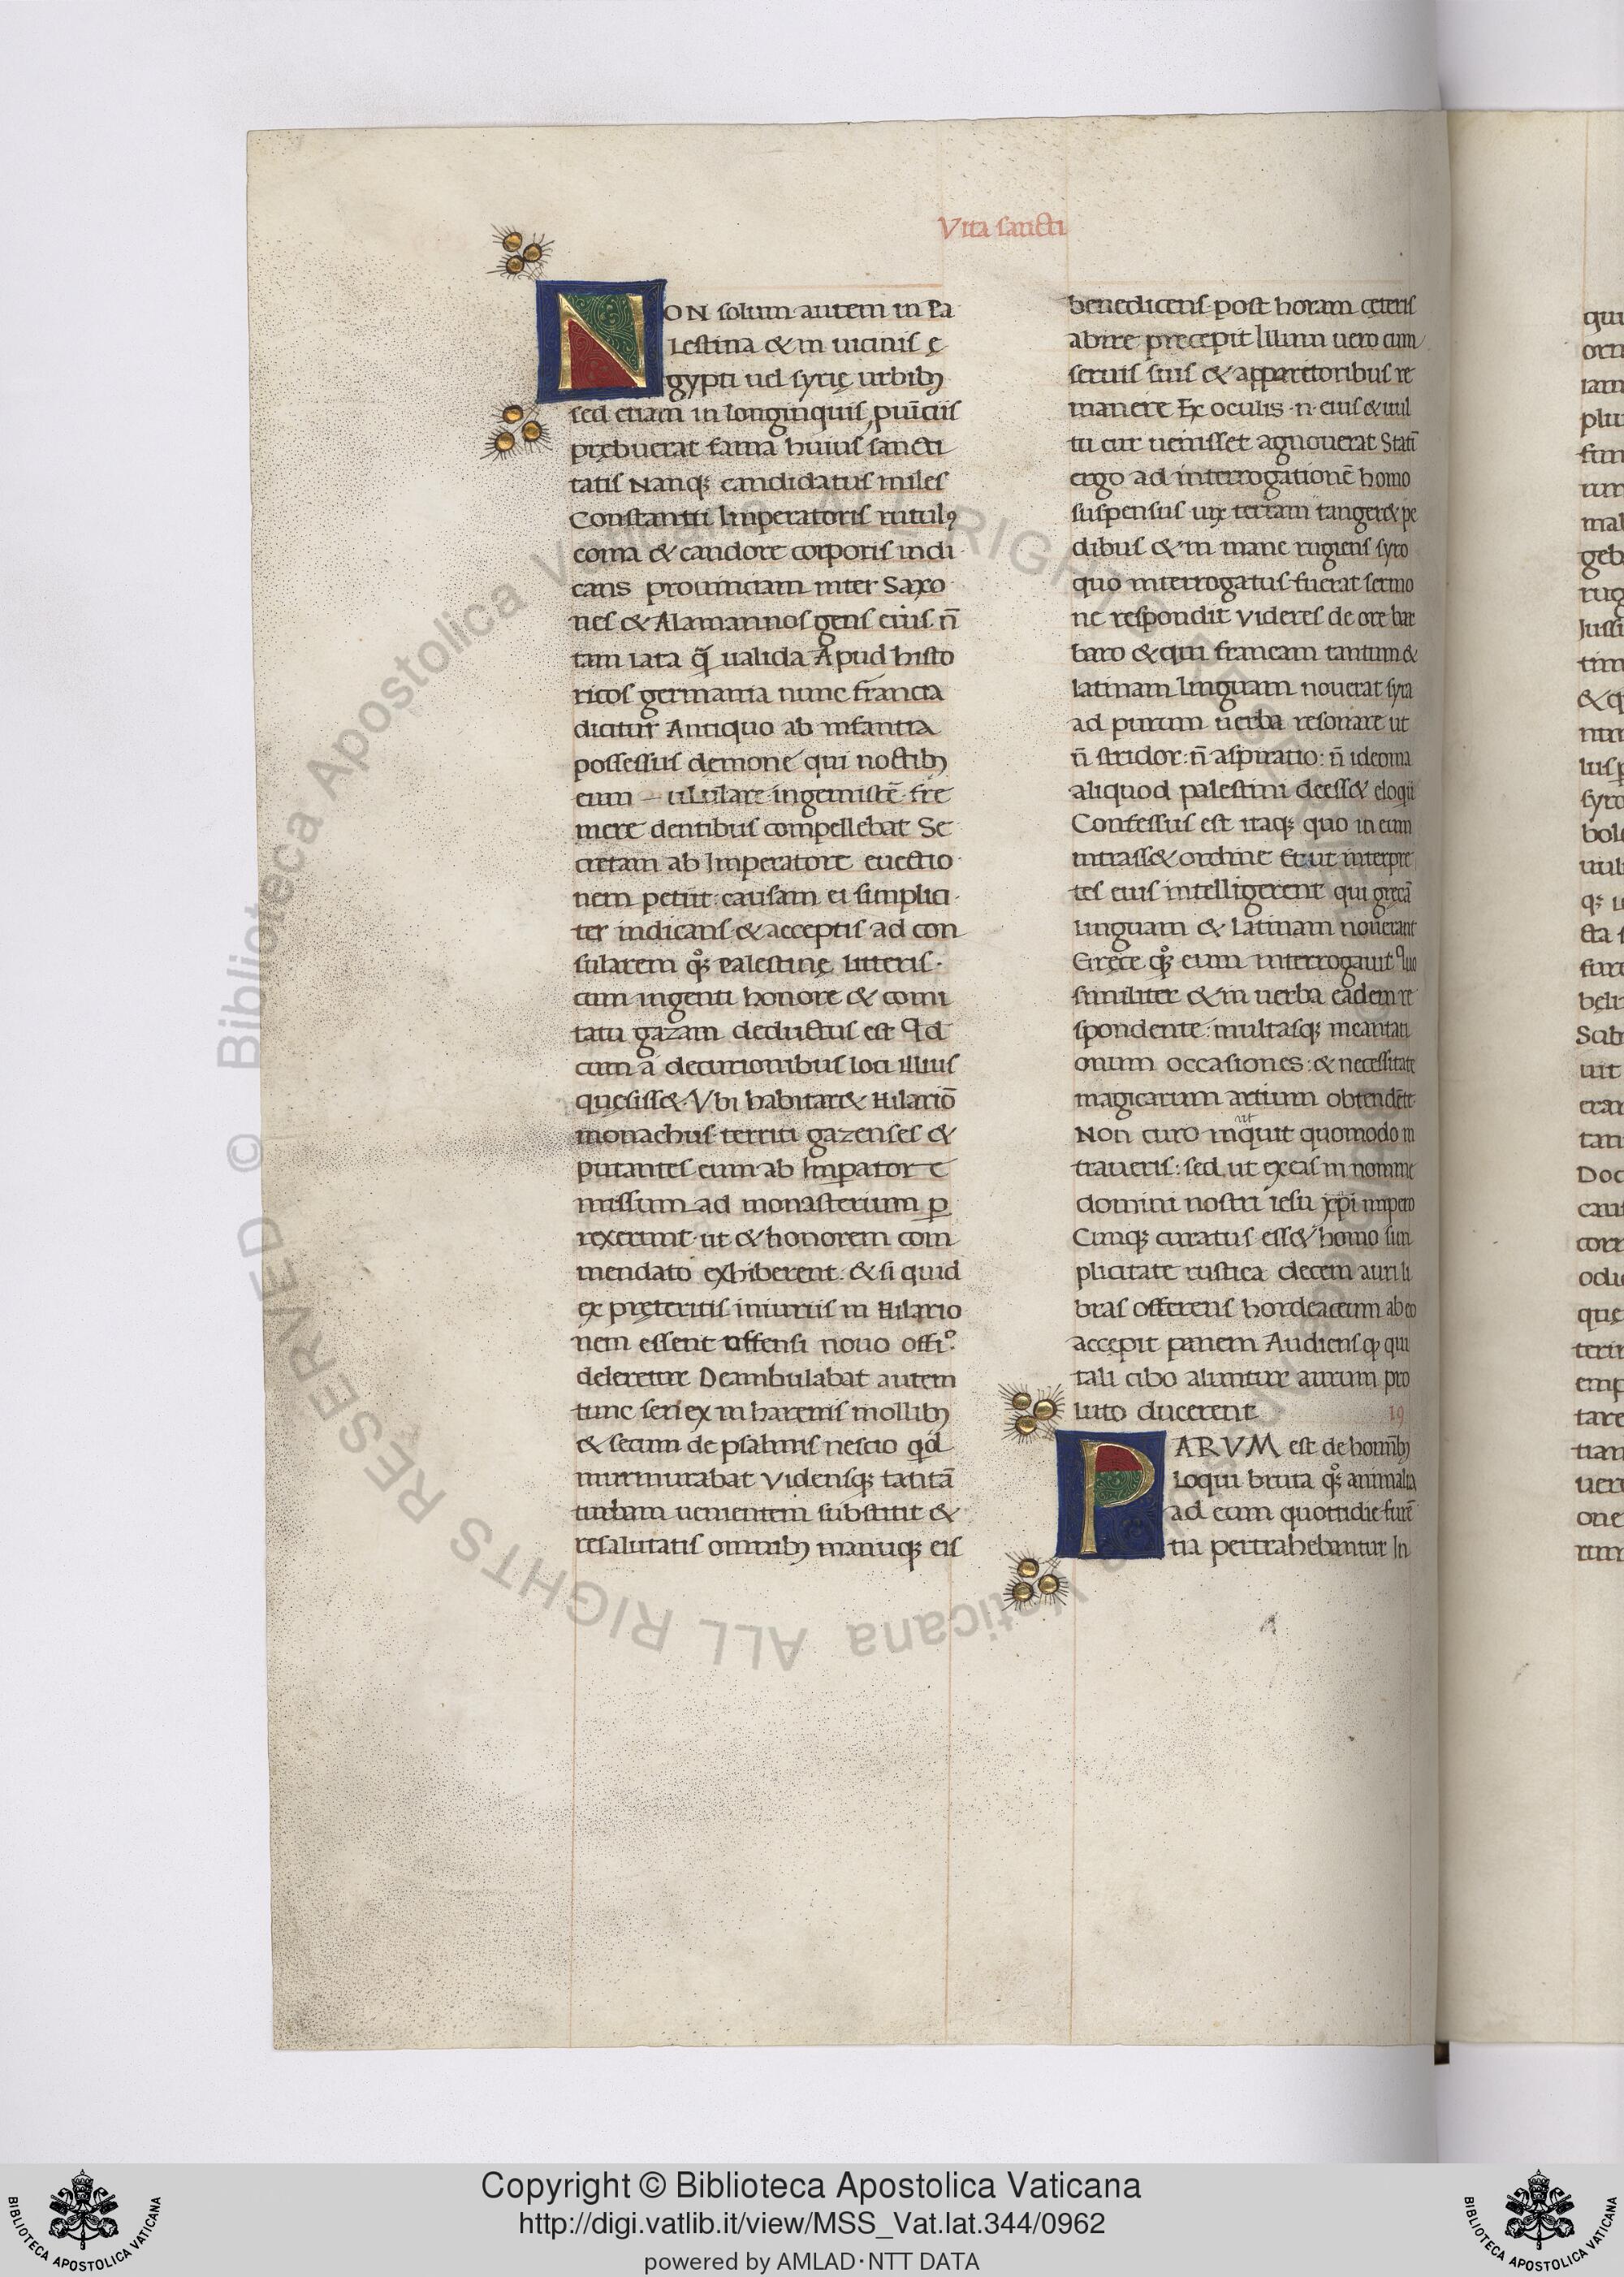 Vita sancti
NON solum autem in Pa
lestina & in uicinis ę
gypti uel syrię urbibꝫ
sed etiam in longinquis ꝓuīciis
prębuerat fama huius sancti
tatis Nanqꝫ candidatus miles
Constantii Imperatoris rutulꝰ
coma & candore corporis indi
cans prouinciam inter Saxo
nes & Alamannos gens eius n̄
tam lata q̄ ualida Apud histo
ricos germania nunc francia
dicitur Antiquo ab infantia
possessus demone qui noctibꝫ
eum ululare ingemiscē fre
mere dentibus compellebat Se
cretam ab Imperatore euectio
nem petiit causam ei simplici
ter indicans & acceptis ad con
sularem qꝫ Palestinę litteris
cum ingenti honore & comi
tatu gazam deductus est Qd
cum a decurionibus loci illius
quesiss& Vbi habitar& Hilariō
monachus territi gazenses &
putantes eum ab Imperatore
missum ad monasterium ꝑ
rexerunt ut & honorem com
mendato exhiberent & si quid
ex pręteritis iniuriis in Hilario
nem essent offensi nouo offi.º
deleretur Deambulabat autem
tunc senex in harenis mollibꝫ
& secum de psalmis nescio qd
murmurabat Vidensqꝫ tātā
turbam uenientem substitit &
resalutatis omnibꝫ manuqꝫ eis
benedicens post horam ceteris
abire precepit Illum uero cum
seruis suis & apparitoribus re
manere Ex oculis .n. eius & uul
tu cur uenisset agnouerat Statī
ergo ad interrogationē homo
suspensus uix terram tanger& pe
dibus & in mane rugiens syro
quo interrogatus fuerat sermo
ne respondit Videres de ore bar
baro & qui francam tantum &
latinam linguam nouerat syra
ad purum uerba resonare ut
n̄ stridor: n̄ aspiratio: n̄ ideoma
aliquod palestini deess& eloqii
Confessus est itaqꝫ quo in eum
intrass& ordine Et ut interpre
tes eius intelligerent qui grecā
linguam & latinam nouerant
Grece qꝫ eum interrogauit Quo
similiter & in uerba eadem re
spondente: multasqꝫ incantati
onum occasiones: & necessitate
magicarum artium obtendēte
Non curo inquit quomodo in
traueris: sed ut exeas in nomine
domini nostri iesu xp̄i impero
Cunqꝫ curatus ess& homo sim
plicitate rustica decem auri li
bras offerens hordeaceum ab eo
accepit panem Audiensqꝫ qui
tali cibo aluntur aurum pro
luto ducerent
19
PARVM est de homībꝫ
loqui bruta qꝫ animalia
ad eum quottidie furē
tia pertrahebantur In
Copyright © Biblioteca Apostolica Vaticana
http://digi.vatlib.it/view/MSS_Vat.lat.344/0962
powered by AMLAD·NTT DATA
BIBLIOTECA APOSTOLICA VATICANA
BIBLIOTECA APOSTOLICA VATICANA
© Biblioteca Apostolica Vaticana ALL RIGHTS RESERVED